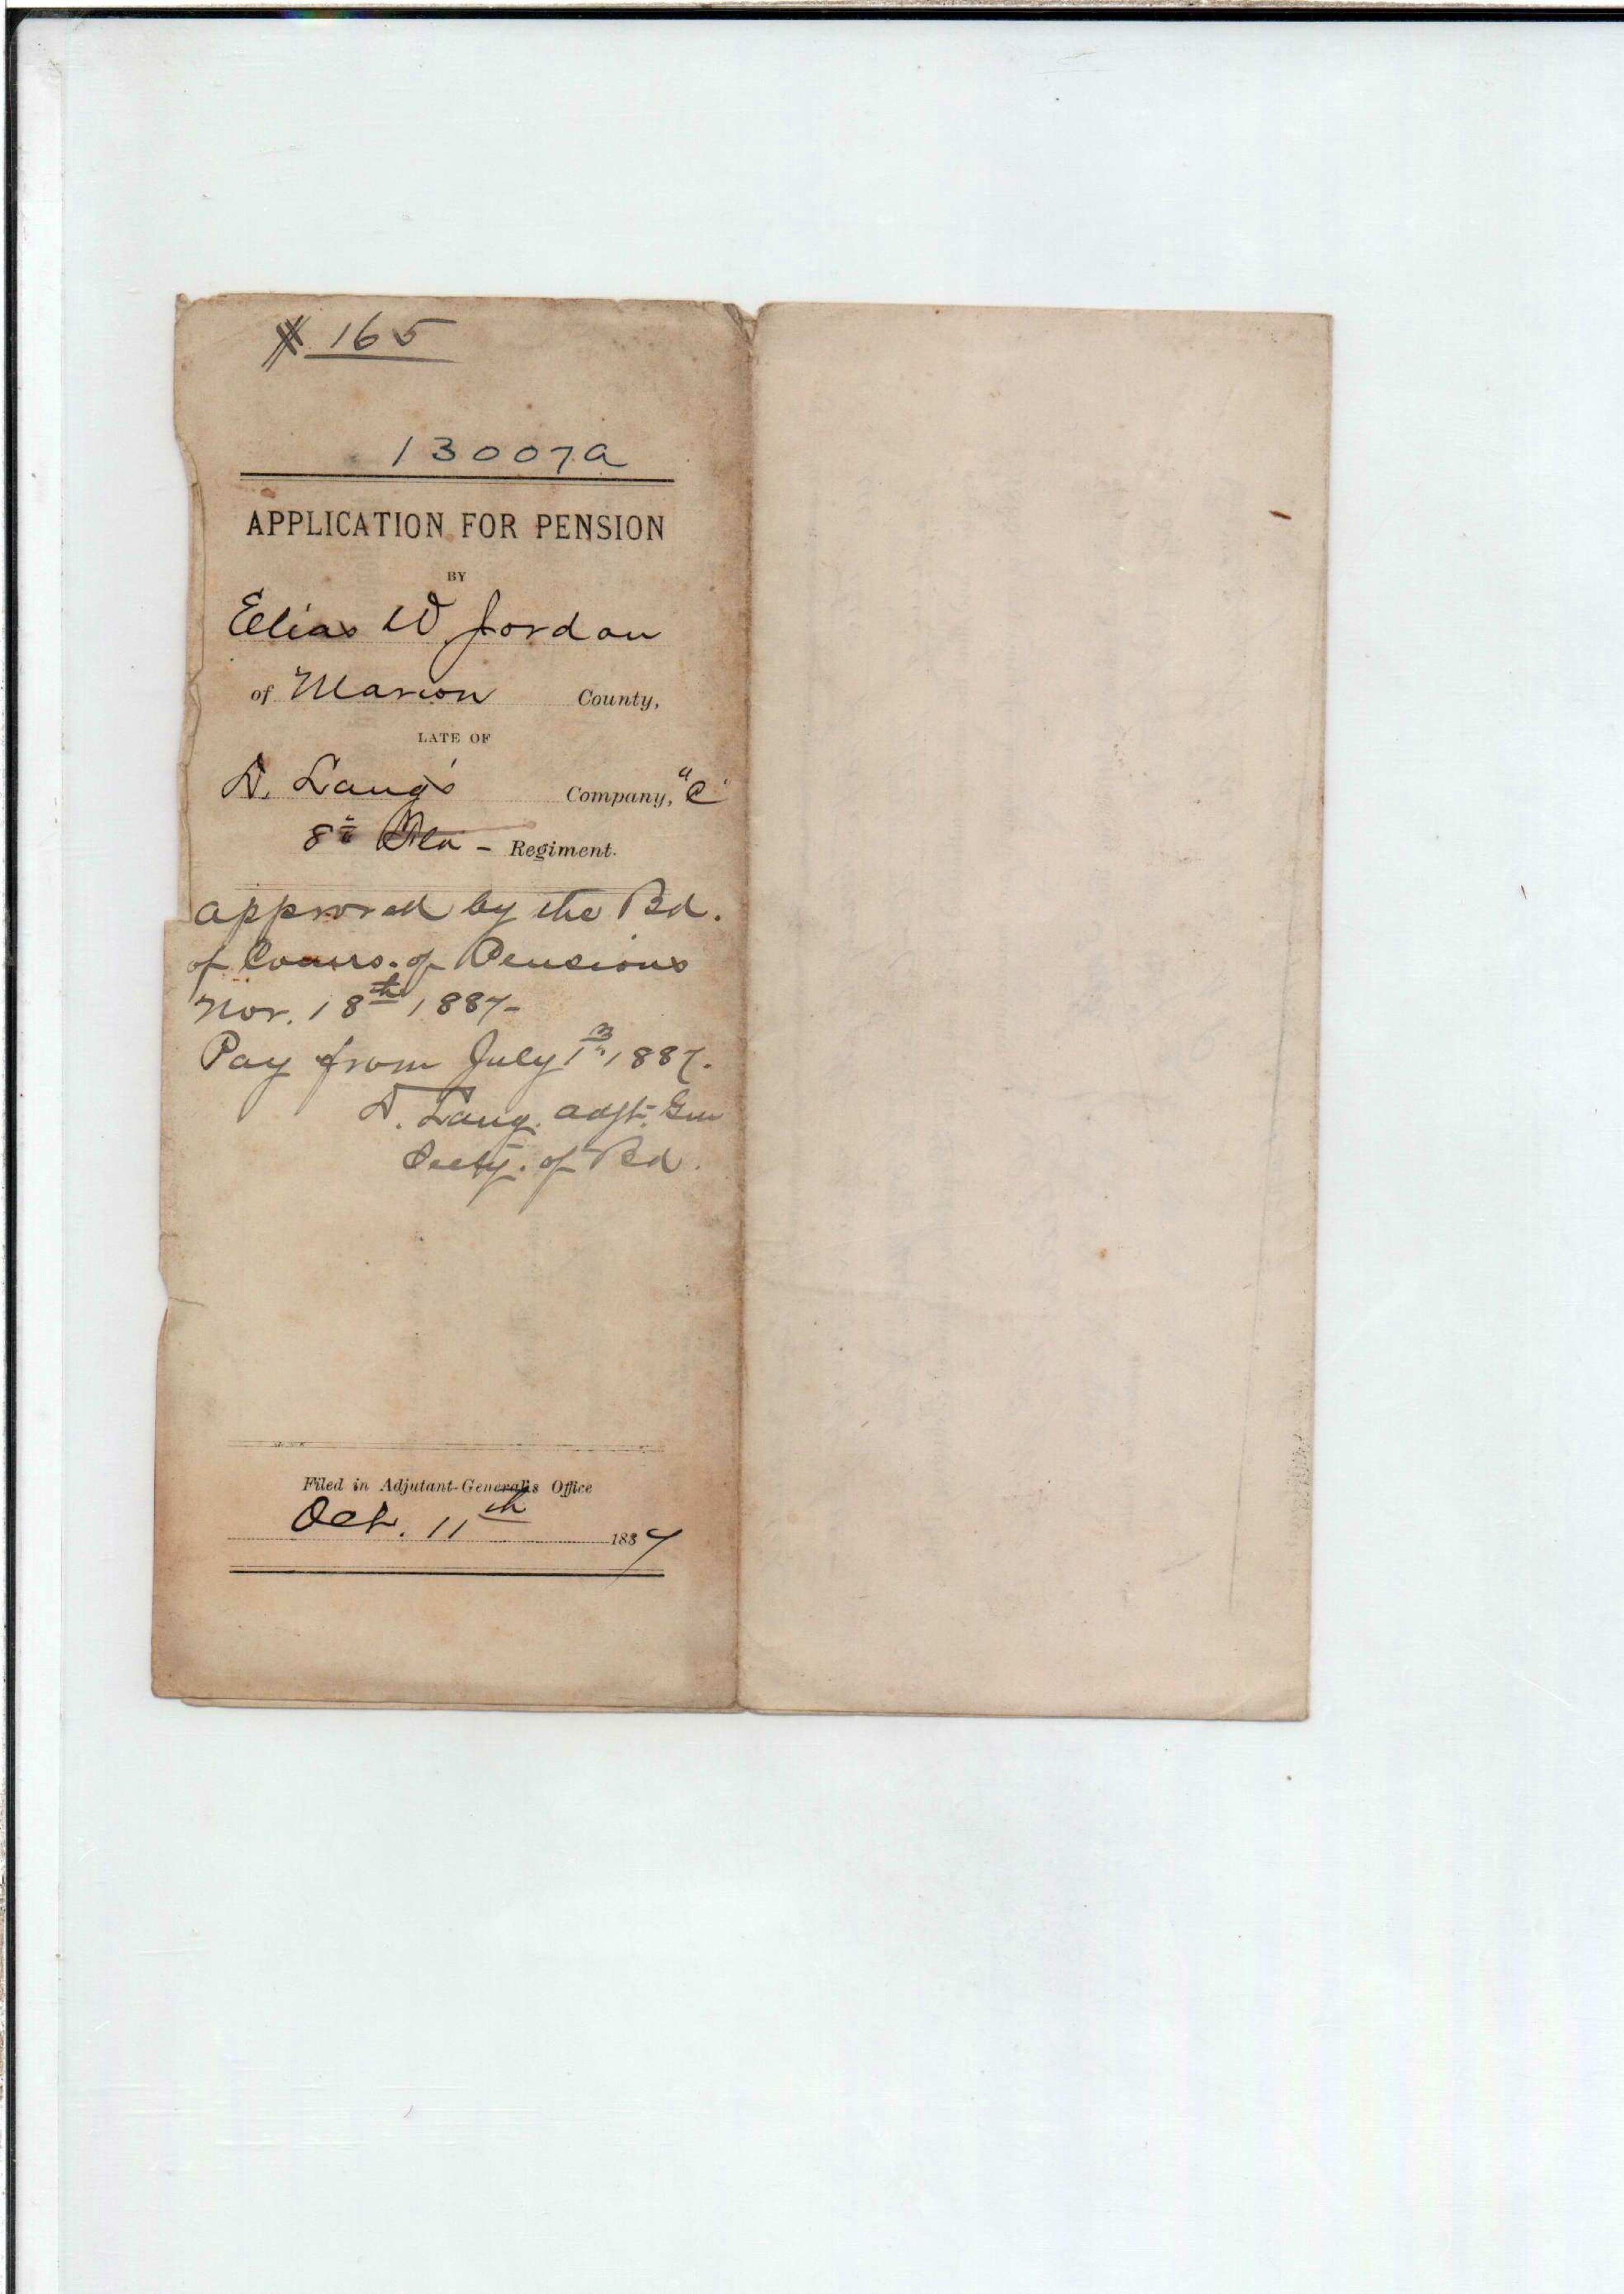 # 165
13007A
APPLICATION FOR PENSION
BY
Elias W Jordan
of Marion County,
LATE OF
D. Lang's Company, "C"
8th Fla - Regiment.
approved by the Bd.
of Comrs. of Pensions
Nov. 18th 1887-
Pay from July 1st 1887.
D. Lang. Adjt. Gen
Secty. of Bd.
Filed in Adjutant-General's Office
Oct. 11th 1887